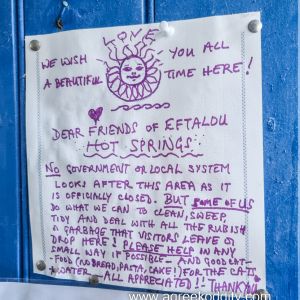 LOVE
WE WISH YOU ALL
A BEAUTIFUL TIME HERE!
DEAR FRIENDS OF EFTALOU
HOT SPRINGS
NO GOVERNMENT OR LOCAL SYSTEM
LOOKS AFTER THIS AREA AS IT
IS OFFICIALLY CLOSED. BUT SOME OF US
DO WHAT WE CAN TO CLEAN, SWEEP,
TIDY AND DEAL WITH ALL THE RUBISH
& GARBAGE THAT VISITORS LEAVE OR
DROP HERE! PLEASE HELP IN ANY
SMALL WAY IF POSSIBLE - AND GOOD CAT-
-FOOD (NO BREAD, PASTA, CAKE!) FOR THE CATS
& WATER - ALL APPRECIATED!! THANKYOU